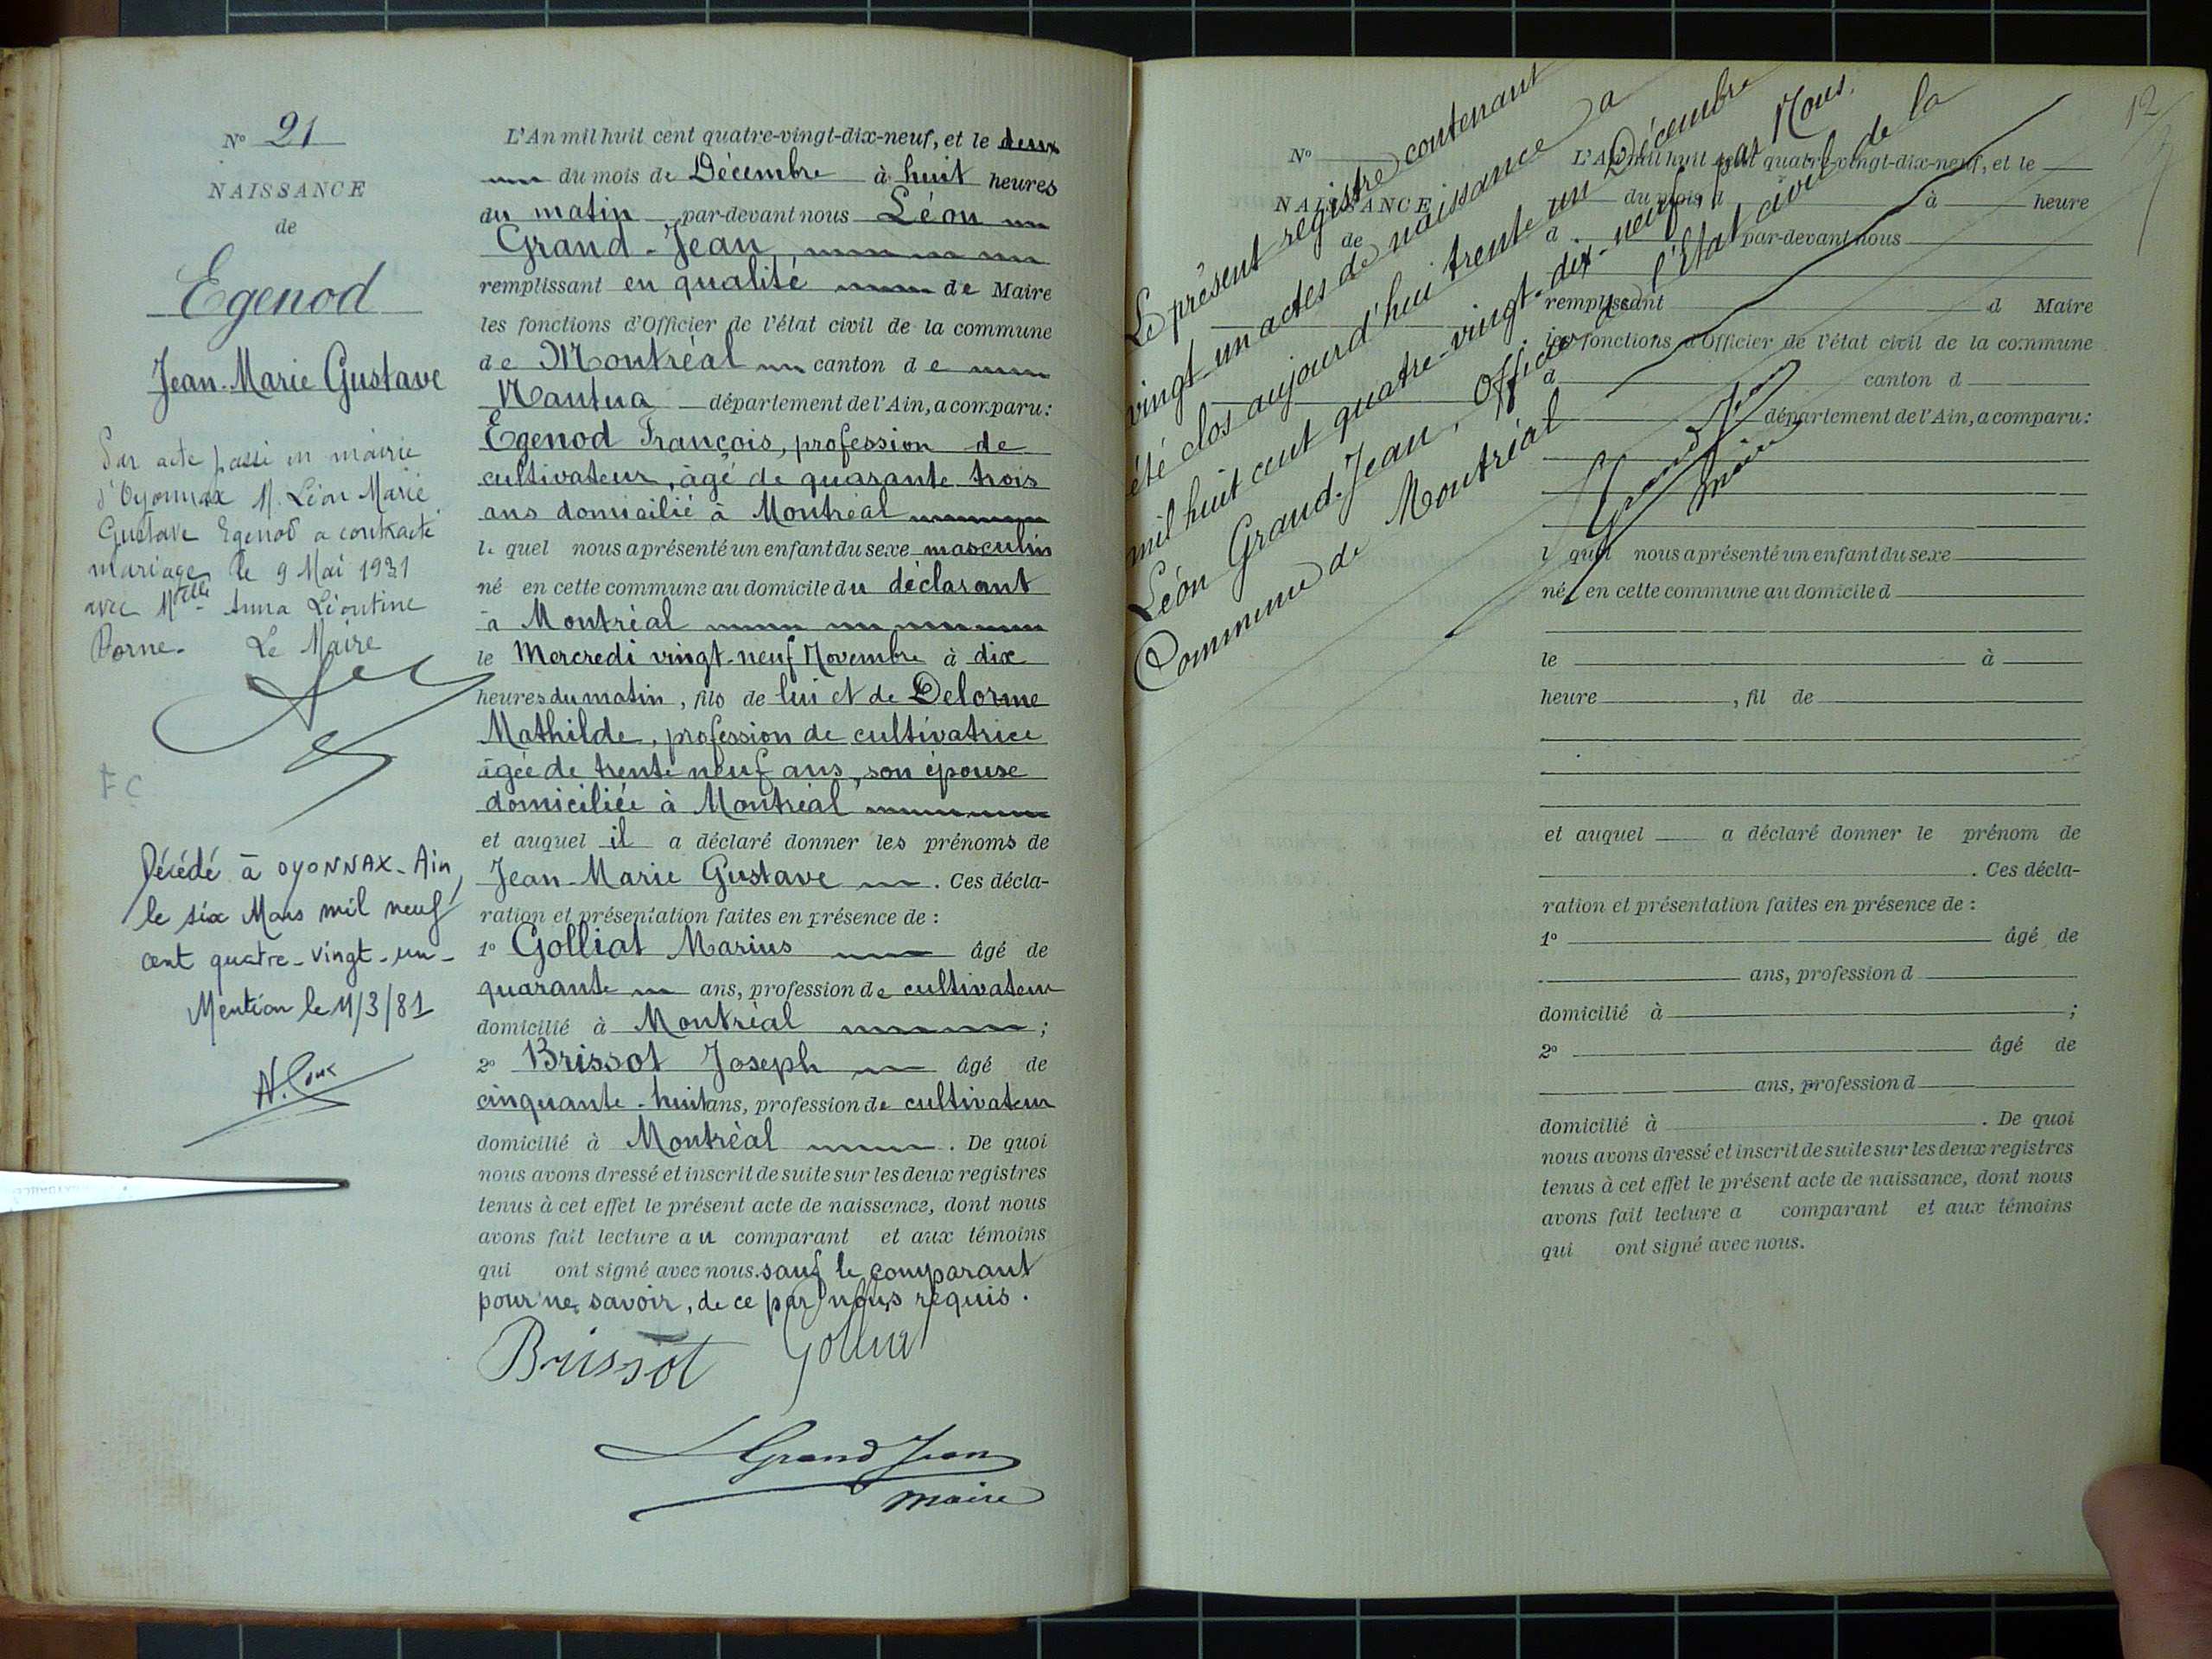 N° 21
NAISSANCE
de
Egenod
Jean-Marie Gustave
Par acte passé en mairie
d'Oyonnax M. Léon Marie
Gustave Egenod a contracté
mariage le 9 Mai 1931
avec Melle Anna Léontine
Le Maire
FC
Décédé à OYONNAX - Ain,
le six Mars mil neuf
cent quatre-vingt-un-
Mention le 11/3/81
L'An mil huit cent quatre-vingt-dix-neuf, et le deux
du mois de Décembre à huit heures
du matin par-devant nous Léon
Grand-Jean,
remplissant en qualité de Maire
les fonctions d'Officier de l'état civil de la commune
de Montréal canton de
Nantua département de l'Ain, a comparu:
Egenod François, profession de
cultivateur, âgé de quarante trois
ans domicilié à Montréal
le quel nous a présenté un enfant du sexe masculin
né en cette commune au domicile du déclarant
à Montréal
le Mercredi vingt-neuf Novembre à dix
heures du matin, fils de lui et de Delorme
Mathilde, profession de cultivatrice
âgée de trente neuf ans, son épouse
domiciliée à Montréal
et auquel il a déclaré donner les prénoms de
Jean-Marie Gustave . Ces décla-
ration et présentation faites en présence de :
1° Golliat Marius âgé de
quarante ans, profession de cultivateur
domicilié à Montréal ;
2° Brissot Joseph âgé de
cinquante-huit ans, profession de cultivateur
domicilié à Montréal . De quoi
nous avons dressé et inscrit de suite sur les deux registres
tenus à cet effet le présent acte de naissance, dont nous
avons fait lecture au comparant et aux témoins
qui ont signé avec nous. sauf le comparant
pour ne savoir, de ce par nous requis.
Brissot Golliat
L Grand Jean
maire
12
Le présent registre contenant
vingt un actes de naissance a
été clos aujourd'hui trente un Décembre
mil huit cent quatre-vingt-dix-neuf, par Nous,
Léon Grand-Jean, Officier de l'état civil de la
Commune de Montréal
Grand Jean
maire
N°
NAISSANCE
de
L'An mil huit cent quatre-vingt-dix-neuf, et le
du mois d à heure
d par-devant nous
remplissant d Maire
les fonctions d'Officier de l'état civil de la commune
d canton d
département de l'Ain, a comparu:
l quel nous a présenté un enfant du sexe
né en cette commune au domicile d
le à
heure , fil de
et auquel a déclaré donner le prénom de
. Ces décla-
ration et présentation faites en présence de :
1° âgé de
ans, profession d
domicilié à ;
2° âgé de
ans, profession d
domicilié à . De quoi
nous avons dressé et inscrit de suite sur les deux registres
tenus à cet effet le présent acte de naissance, dont nous
avons fait lecture a comparant et aux témoins
qui ont signé avec nous.